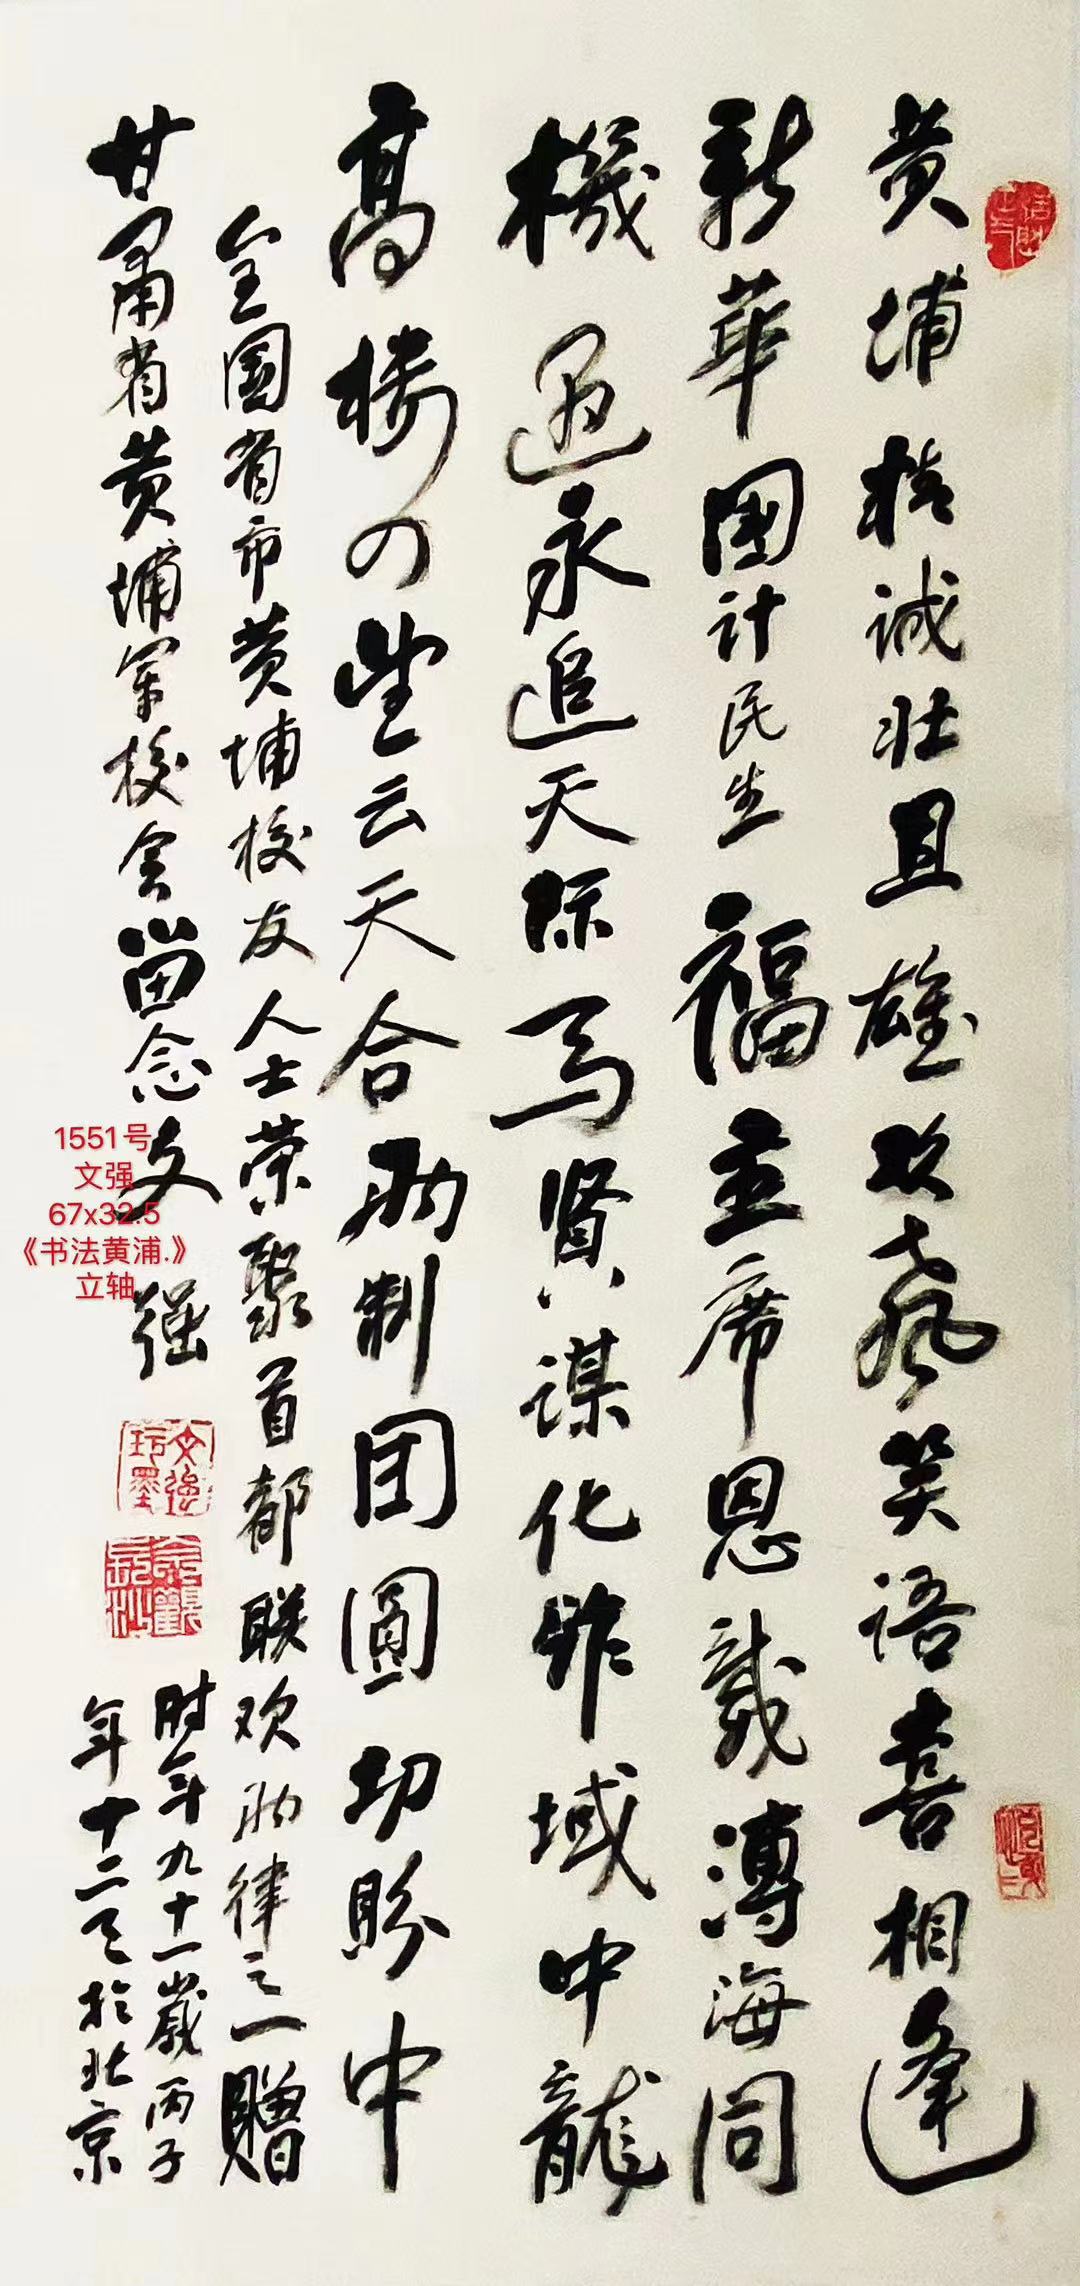 黄埔精诚壮且雄欢气笑语喜相逢
新华国计民生福主席恩戴溥海同
機遇永追天际马贤谋化作域中龍
高楼望云天合两制团圆功盼中
全国省市黄埔校友人士荣聚首都联欢两律之一赠
甘肃省黄埔军校会留念文强
时年九十一歲丙子
年十二于北京
文強
1551号
文强
67x32.5
《书法黄浦.》
立轴